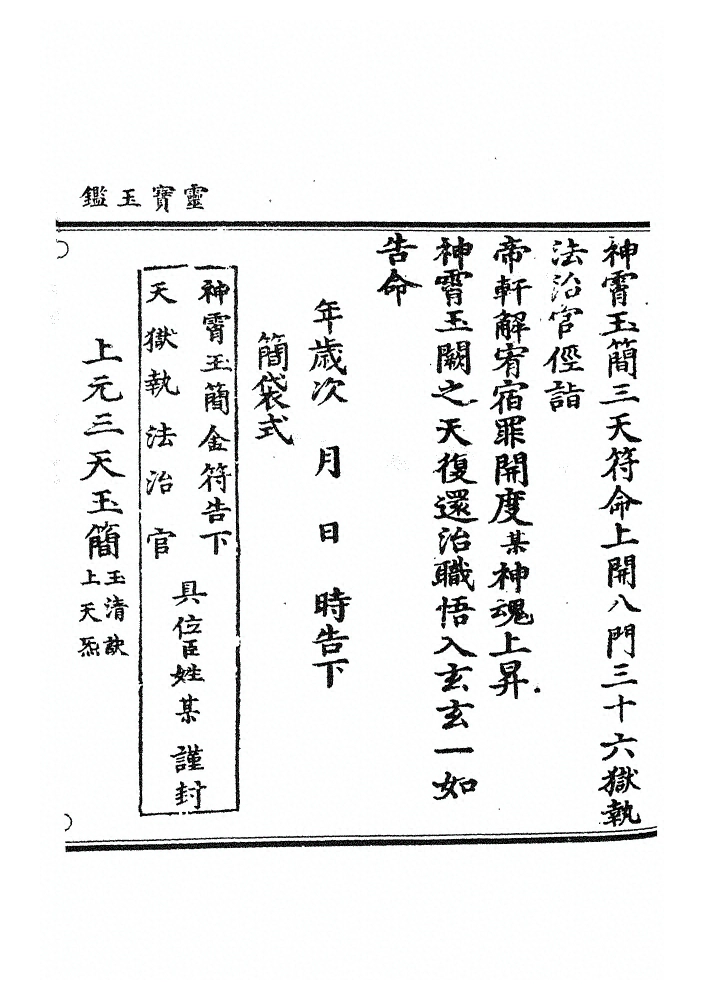 靈寶玉鑑
神霄玉簡三天符命上開八門三十六獄執
法治官徑詣
帝軒解宥宿罪開度某神魂上昇
神霄玉闕之天復還治職悟入玄玄一如
告命
年歲次 月 日 時告下
簡袋式
神霄玉簡金符告下
天獄執法治官
具位臣姓某 謹封
上元三天玉簡 玉清訣
上天炁